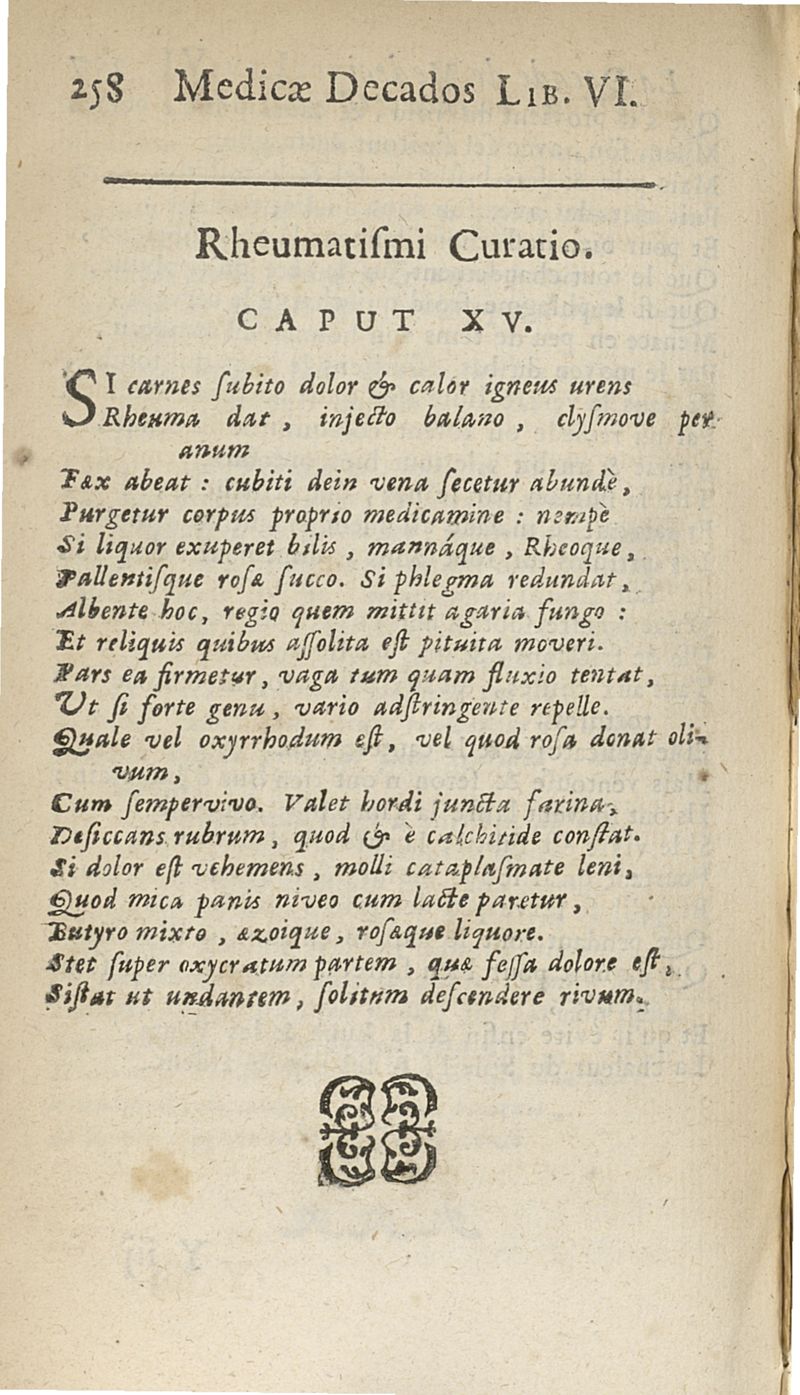 258 Medicæ Decados LIB. VI.
Rheumatiſmi Curatio.
CAPUT XV.
SI carnes ſubito dolor & calor igneus urens
Rheuma dat, injecto balano, clyſmove per
anum
Fæx abeat : cubiti dein vena ſecetur abundè,
Purgetur corpus proprio medicamine : nempè
Si liquor exuperet bilis, mannáque, Rheoque,
Pallentiſque roſæ ſucco. Si phlegma redundat,
Albente hoc, regio quem mittit agaria fungo :
Et reliquis quibus aſſolita eſt pituita moveri.
Pars ea firmetur, vaga tum quam fluxio tentat,
Ut ſi forte genu, vario adſtringente repelle.
Quale vel oxyrrhodum eſt, vel quod roſa donat oli-
vum,
Cum ſempervivo. Valet hordi juncta farina,
Deſiccans rubrum, quod & è calchitide conſtat.
Si dolor eſt vehemens, molli cataplaſmate leni,
Quod mica panis niveo cum lacte paretur,
Butyro mixto, æzoique, roſæque liquore.
Stet ſuper oxycratum partem, quæ feſſa dolore eſt,
Siſtat ut undantem, ſolitum deſcendere rivum.